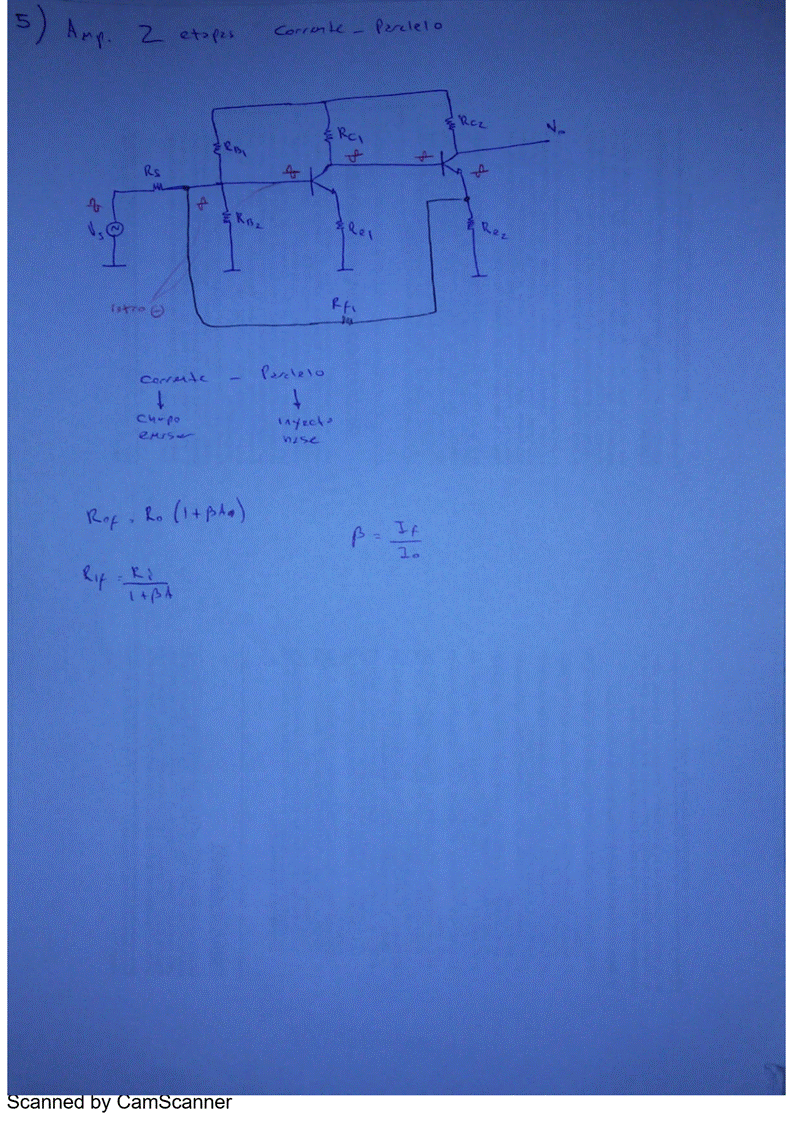 5) Amp. 2 etapas Corriente - Paralelo
RB1
RC1
RC2
Vo
RS
VS
RB2
Re1
Re2
Rf1
Corriente - Paralelo
Chupo inyecto
emisor base
Rof = Ro (1 + βA)
β = If / Io
Rif = Ri / 1 + βA
Scanned by CamScanner